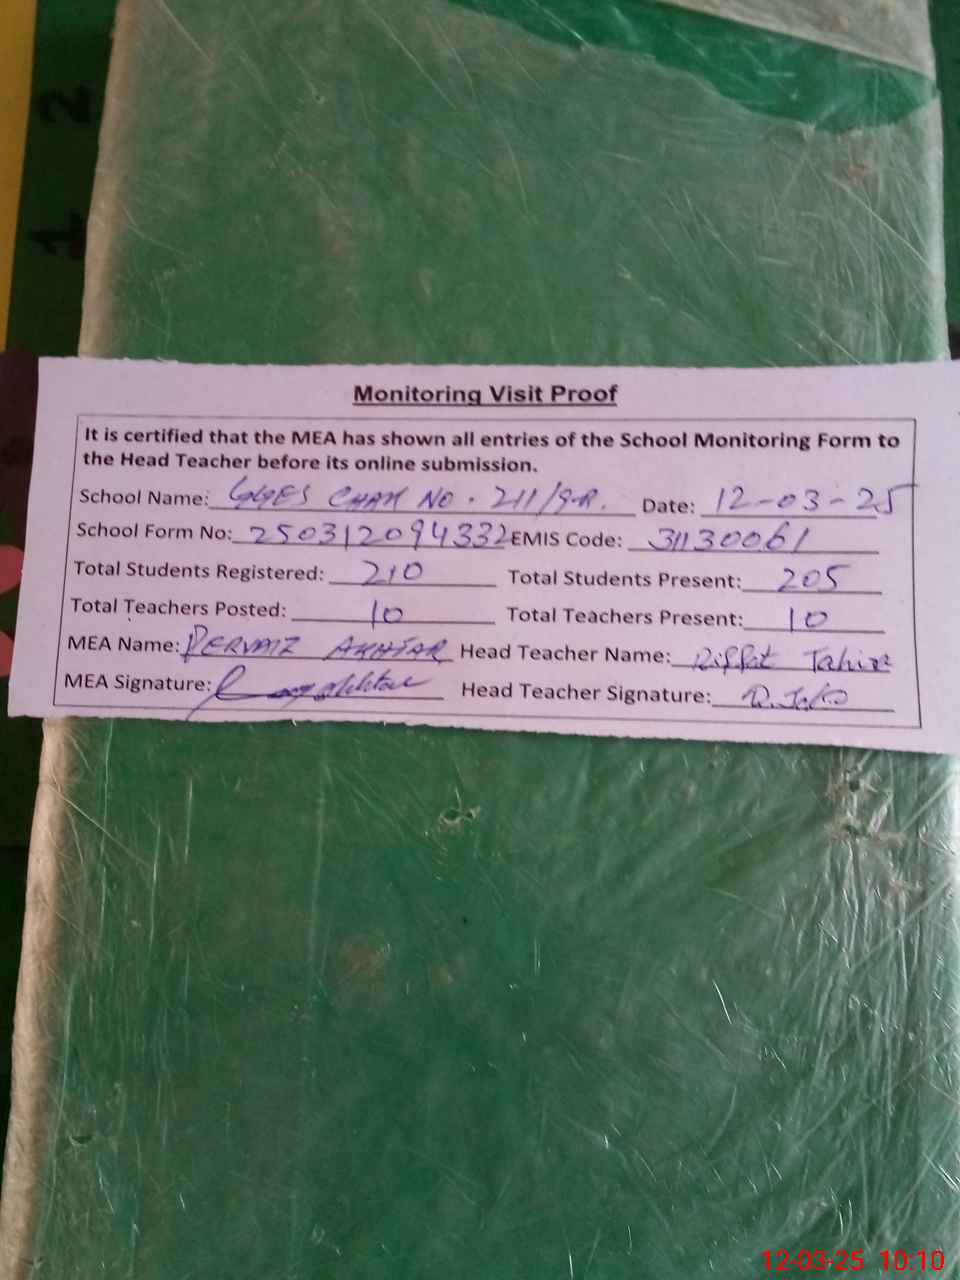 2
1
Monitoring Visit Proof
It is certified that the MEA has shown all entries of the School Monitoring Form to
the Head Teacher before its online submission.
School Name: GGES CHAK NO. 211/9-R. Date: 12-03-25
School Form No: 250312094332 EMIS Code: 31130061
Total Students Registered: 210 Total Students Present: 205
Total Teachers Posted: 10 Total Teachers Present: 10
MEA Name: PERVAIZ AKHTAR Head Teacher Name: Riffat Tahira
MEA Signature: Head Teacher Signature:
12-03-25 10:10